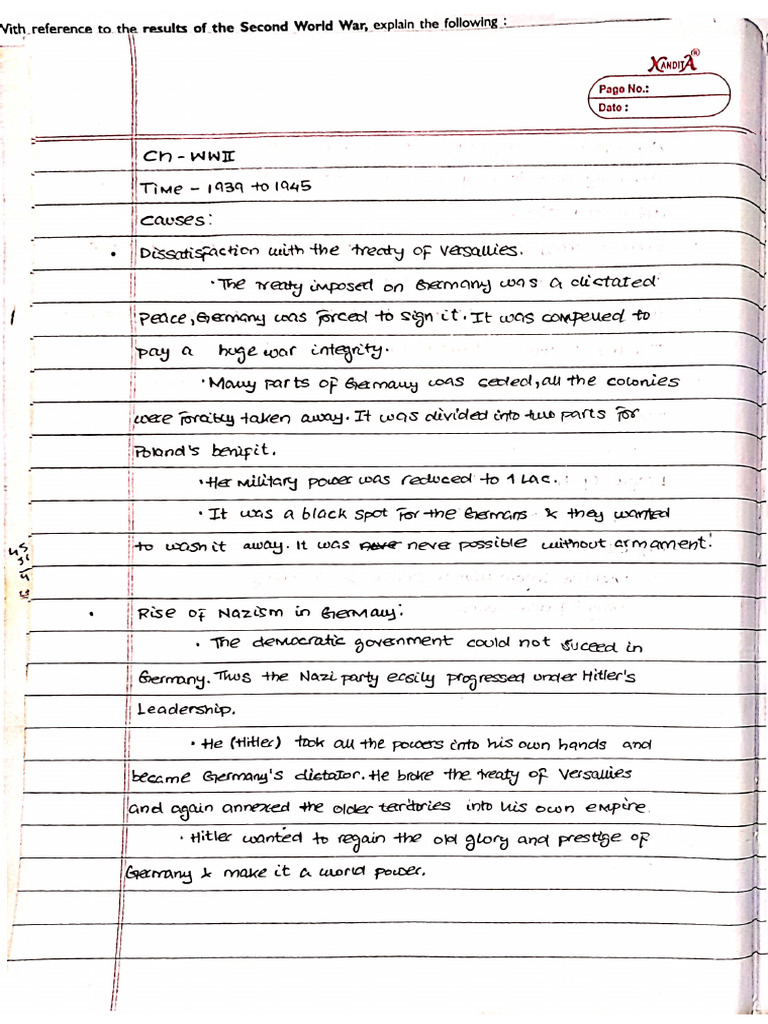 With reference to the results of the Second World War, explain the following :
NANDITA
Page No.:
Date :
Ch - WWII
Time - 1939 to 1945
Causes:
• Dissatisfaction with the treaty of Versallies.
• The treaty imposed on Germany was a dictated
peace, Germany was forced to sign it. It was compelled to
pay a huge war integrity.
• Many parts of Germany was ceded, all the colonies
were forcibly taken away. It was divided into two parts for
Poland's benifit.
• Her military power was reduced to 1 Lac.
• It was a black spot for the Germans & they wanted
to wash it away. It was never never possible without armament.
• Rise of Nazism in Germany:
• The democratic government could not suceed in
Germany. Thus the Nazi party easily progressed under Hitler's
Leadership.
• He (Hitler) took all the powers into his own hands and
became Germany's dictator. He broke the treaty of Versallies
and again annexed the older territories into his own empire.
• Hitler wanted to regain the old glory and prestige of
Germany & make it a world power.